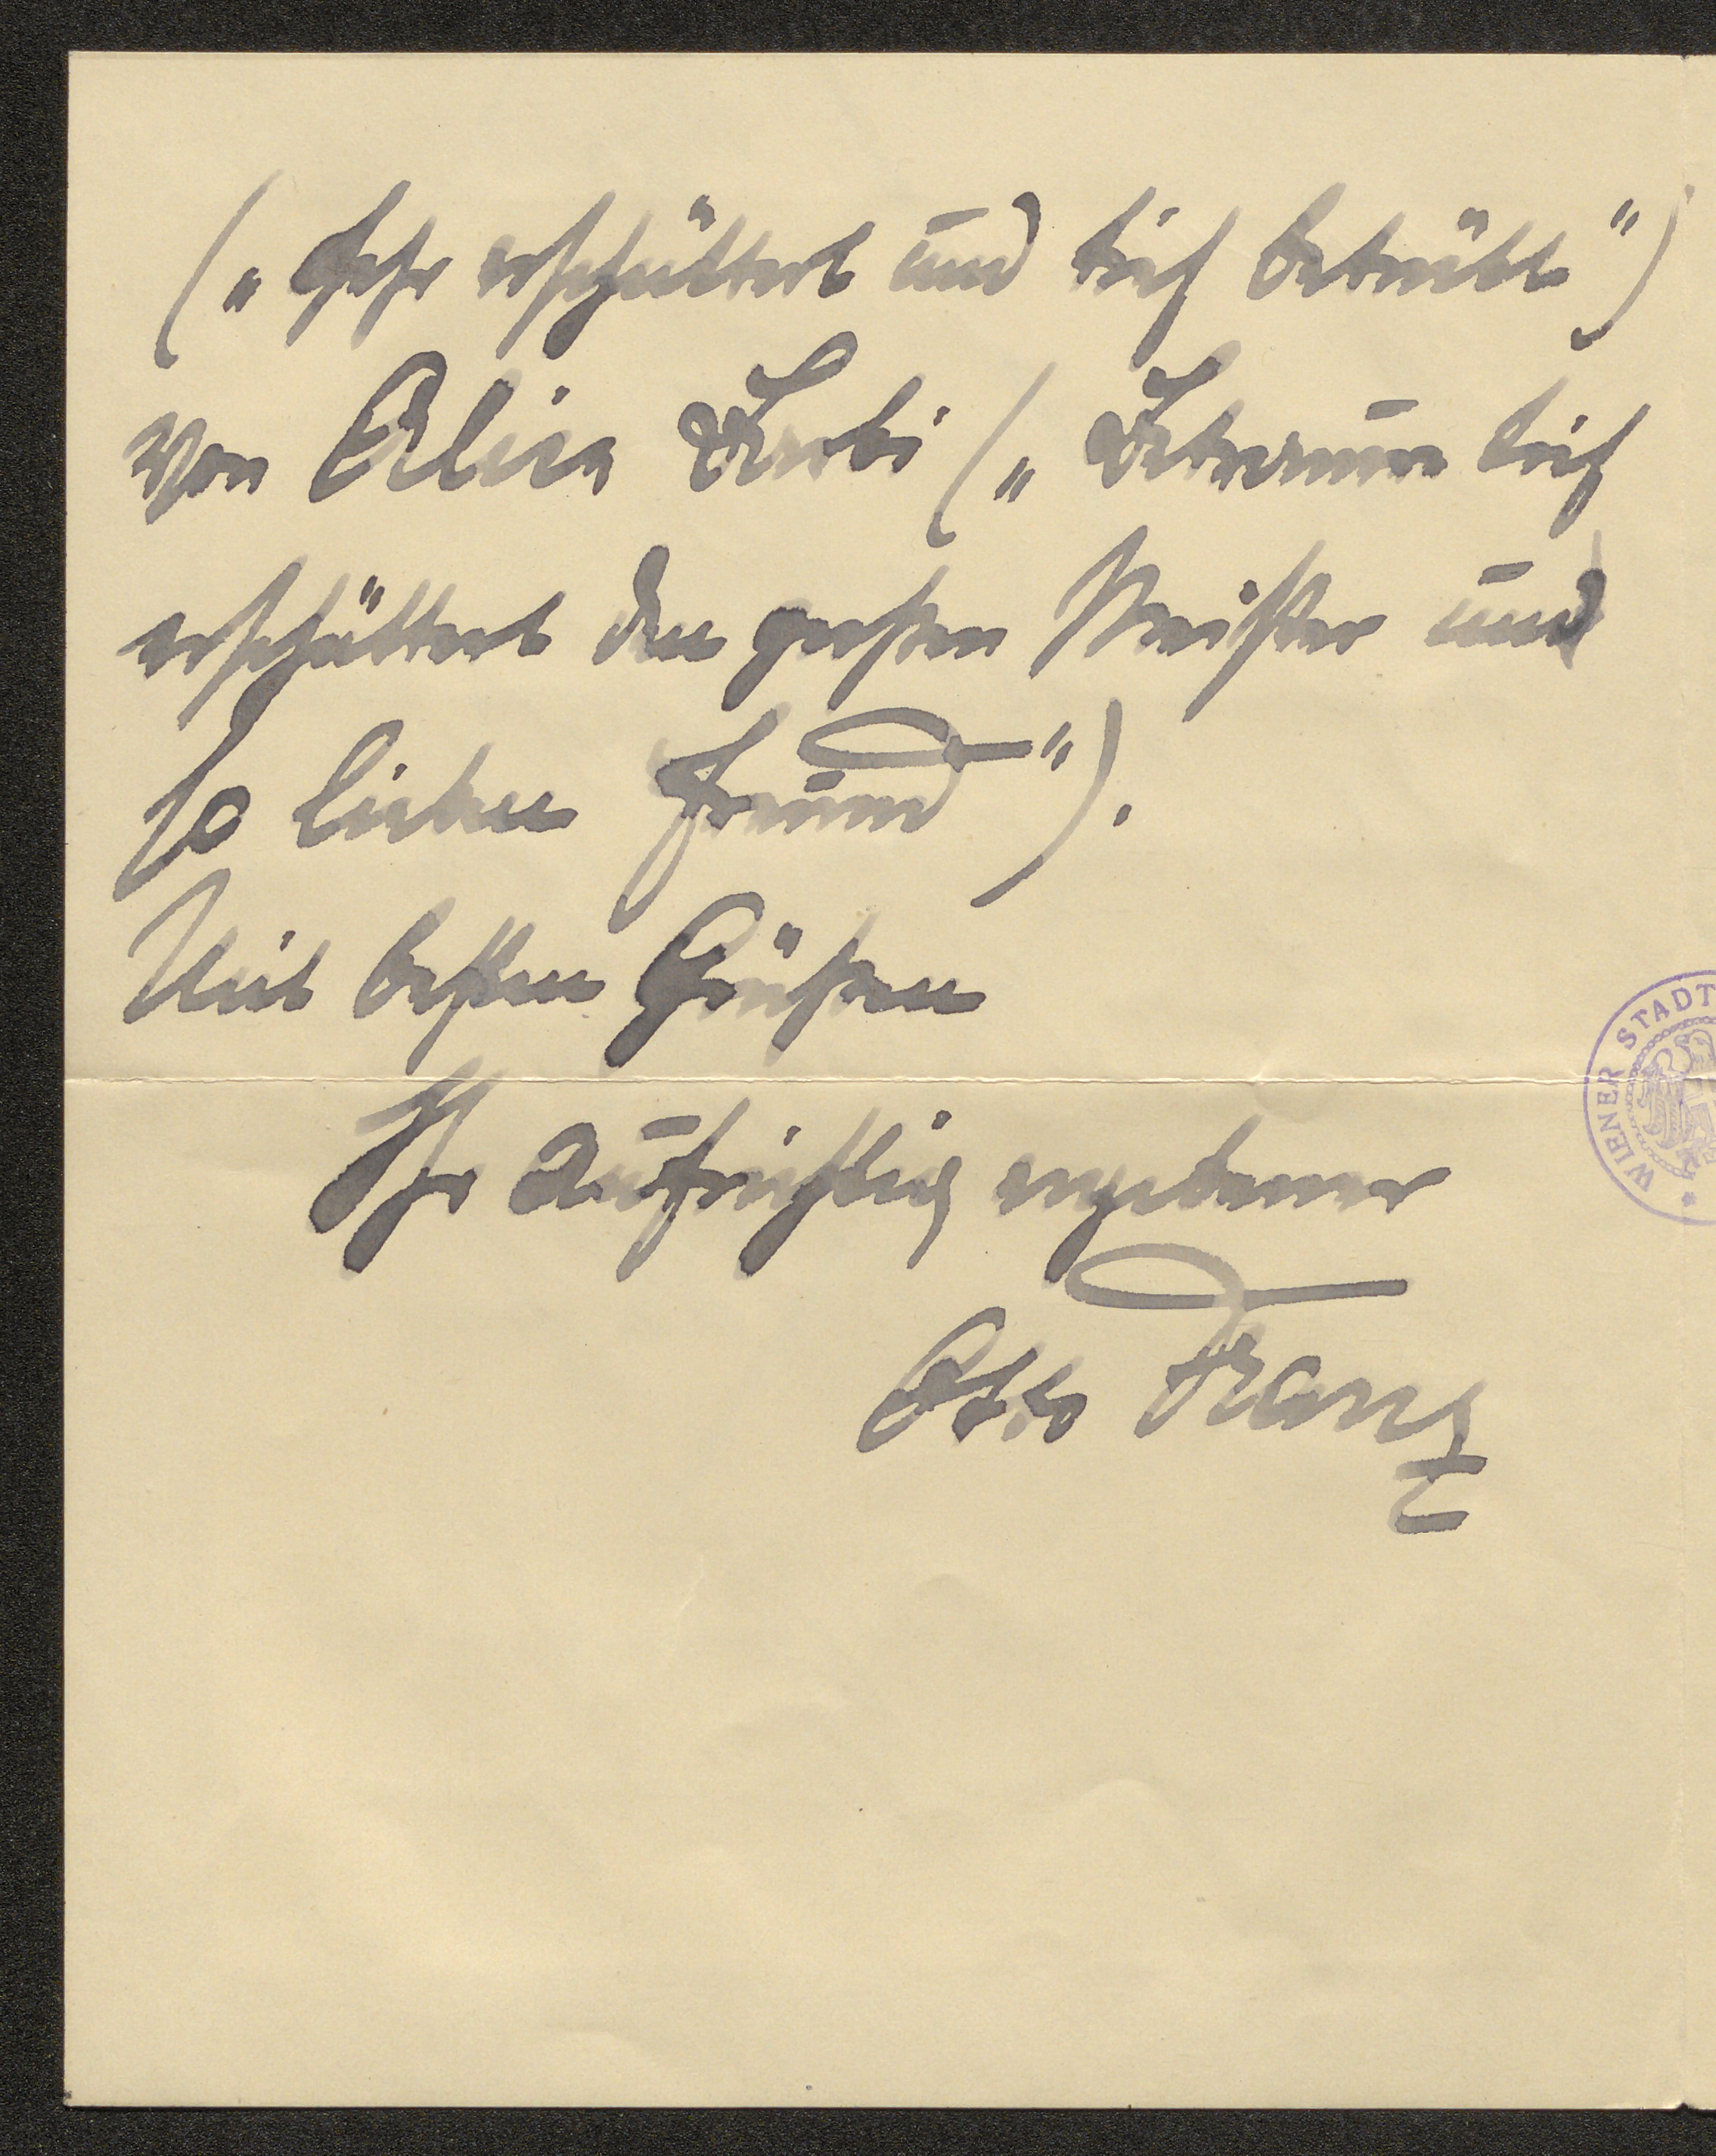 („Sehr erschüttert und tief betrübt")
von Alice Barbi („Betrauern tief
erschüttert den großen Meister und
so lieben Freund").
Mit besten Grüßen
Ihr aufrichtig ergebener
Otto Franz
WIENER STADT